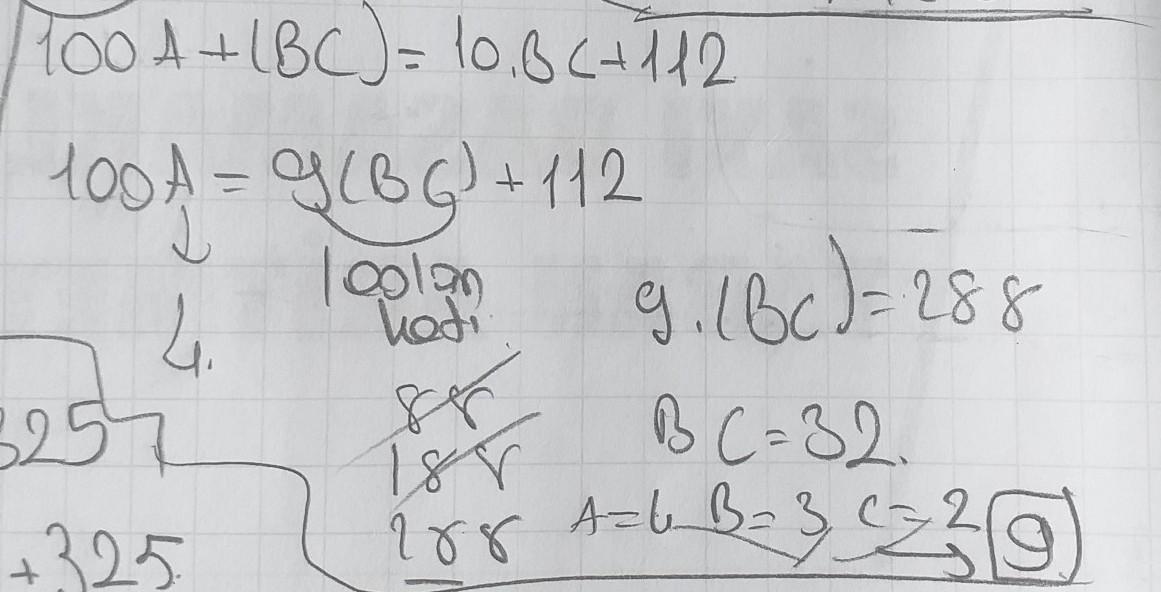 100A+(BC)=10.BC+112
100A = 9(BC) + 112
↓
100'ün
katı
4.
9.(BC)=288
325
88
188
288
BC=32.
A=4 B=3, C=2 → 9
+325